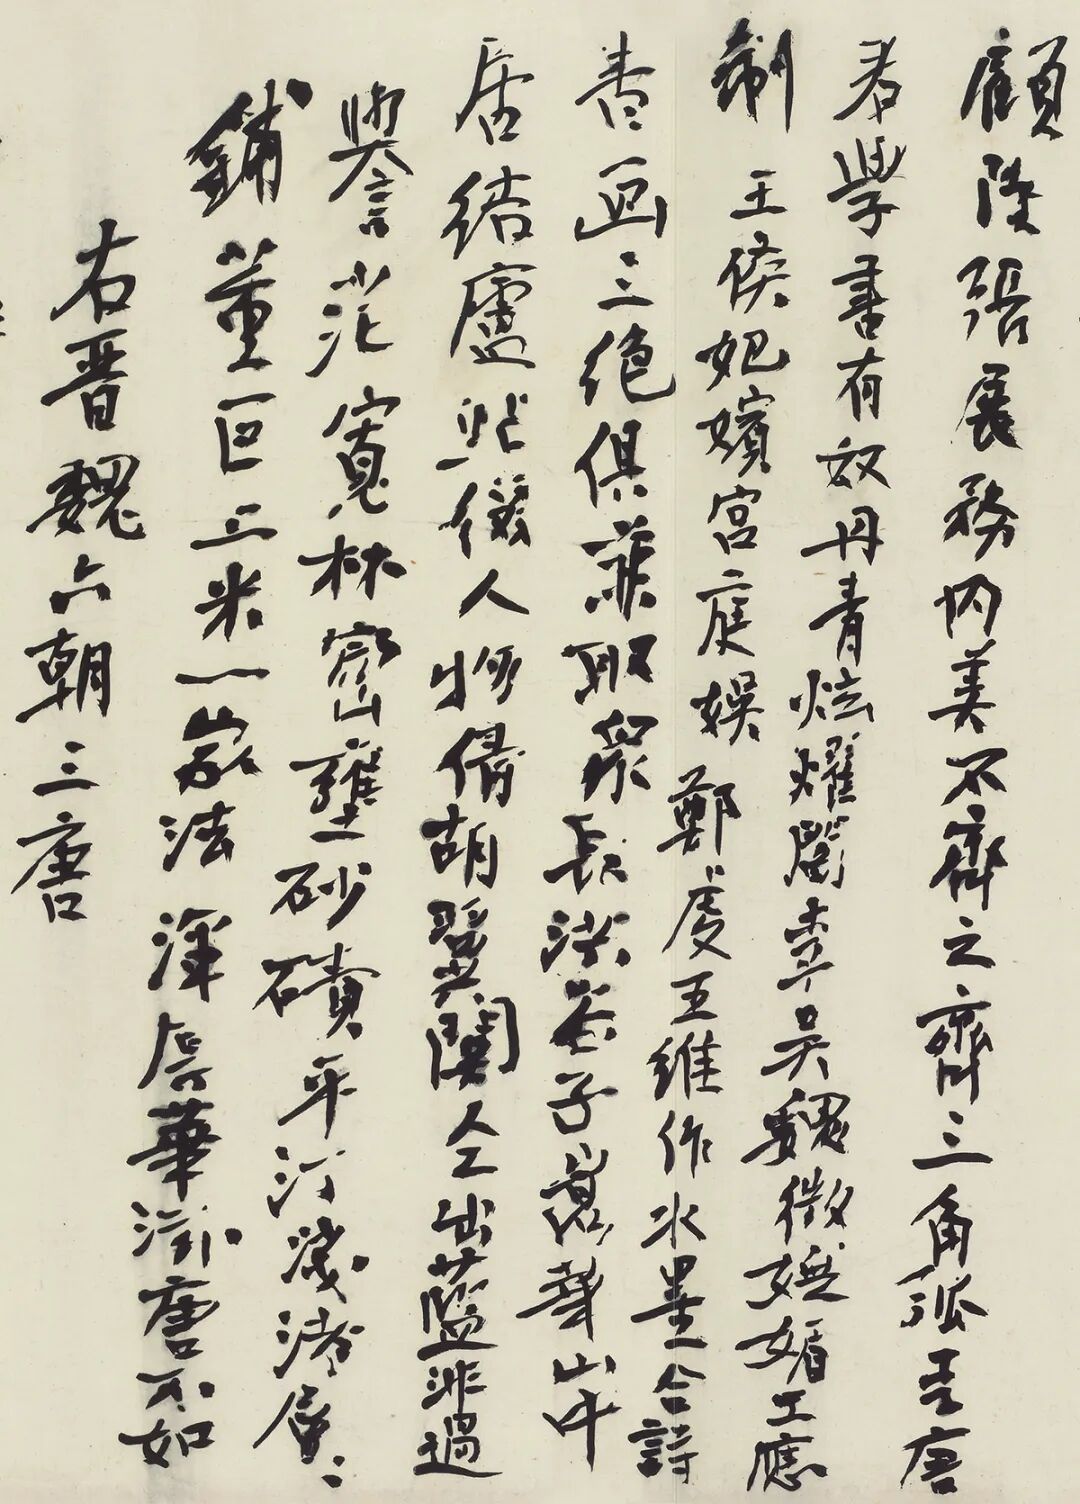 顧陸張展務內美不齊之齊三角弧吾唐
君學書有奴丹青炫耀閻李吳魏微嫵媚工應
制 王侯妃嬪宮庭娛 鄭虔王維作水墨合詩
書画三絕俱兼取眾長洪谷子嵩華山中
居結廬點儀人物倩胡翼關仝出藍非過
譽言茫寬林密山壅砂磧平汀淺渚層〻
鋪董巨二米一家法渾厚華滋唐不如
右晋魏六朝三唐